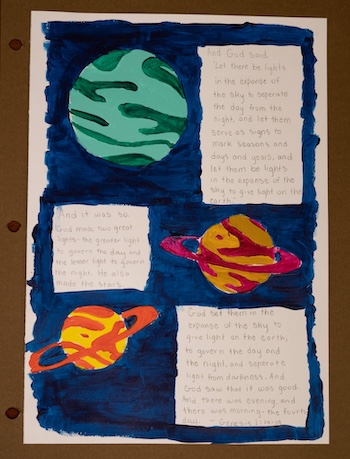 And God said,
"Let there be lights
in the expanse of
the sky to seperate
the day from the
night, and let them
serve as signs to
mark seasons and
days and years, and
let them be lights
in the expanse of the
sky to give light on the
earth."
And it was so.
God made two great
lights- the greater light
to govern the day and
the lesser light to govern
the night. He also
made the stars.
God set them in the
expanse of the sky to
give light on the earth,
to govern the day and
the night, and seperate
light from darkness. And
God saw that it was good.
And there was evening, and
there was morning- the fourth
day. - Genesis